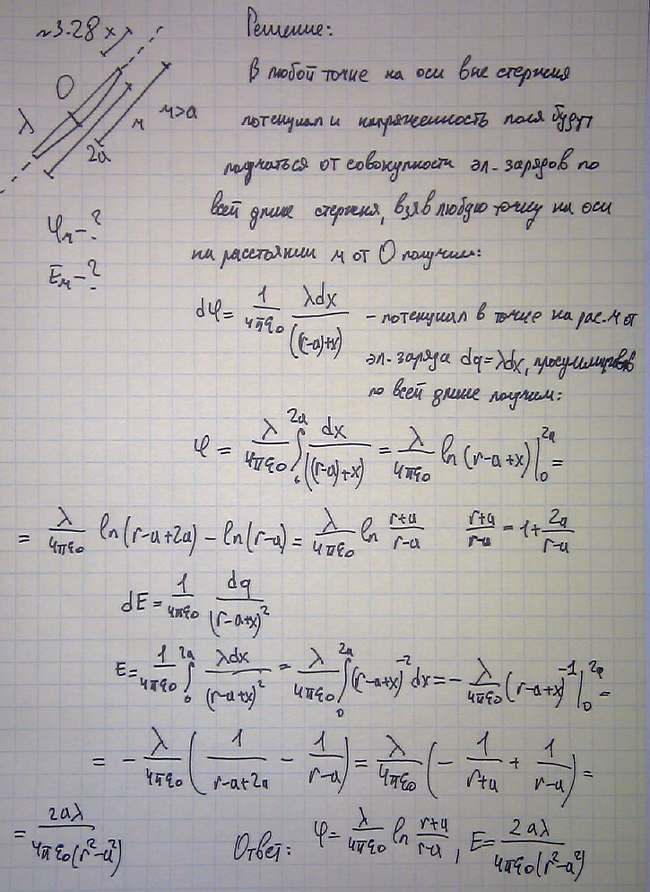 №3.28 x
Решение:
O
λ
r
r>a
2a
В любой точке на оси вне стержня
потенциал и напряженность поля будут
получаться от совокупности эл-зарядов по
всей длине стержня, взяв любую точку на оси
на расстоянии r от O получим:
φr-?
Er-?
dφ = 1/4πε0 λdx/((r-a)+x) - потенциал в точке на рас. r от
эл-заряда dq=λdx,
по всей длине получим:
φ = λ/4πε0 ∫0^2a dx/((r-a)+x) = λ/4πε0 ln(r-a+x)|0^2a =
= λ/4πε0 ln(r-a+2a) - ln(r-a) = λ/4πε0 ln r+a/r-a r+a/r-a = 1+ 2a/r-a
dE = 1/4πε0 dq/(r-a+x)^2
E = 1/4πε0 ∫0^2a λdx/(r-a+x)^2 = λ/4πε0 ∫0^2a (r-a+x)^-2 dx = - λ/4πε0 (r-a+x)^-1|0^2a =
= - λ/4πε0 (1/r-a+2a - 1/r-a) = λ/4πε0 (- 1/r+a + 1/r-a) =
= 2aλ/4πε0(r^2-a^2)
Ответ: φ = λ/4πε0 ln r+a/r-a, E = 2aλ/4πε0(r^2-a^2)